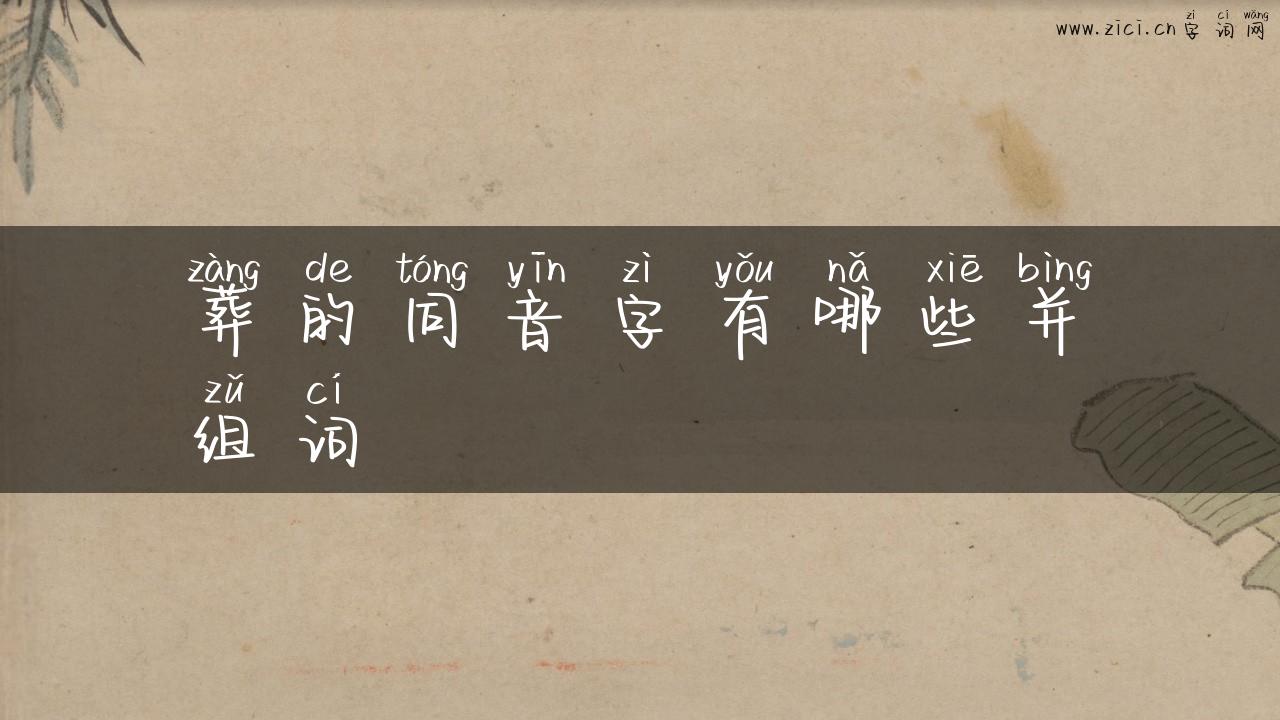 zì cí wǎng
www.zici.cn 字词网
zàng de tóng yīn zì yǒu nǎ xiē bìng
葬的同音字有哪些并
zǔ cí
组词